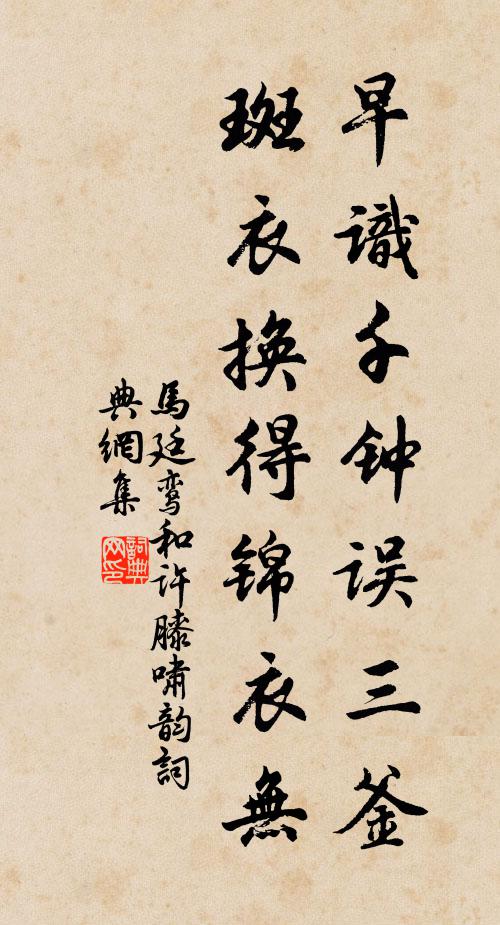 早識千钟误三釜
斑衣换得锦衣無
馬廷鸾和许滕啸韵詞
典網集
詞典網印